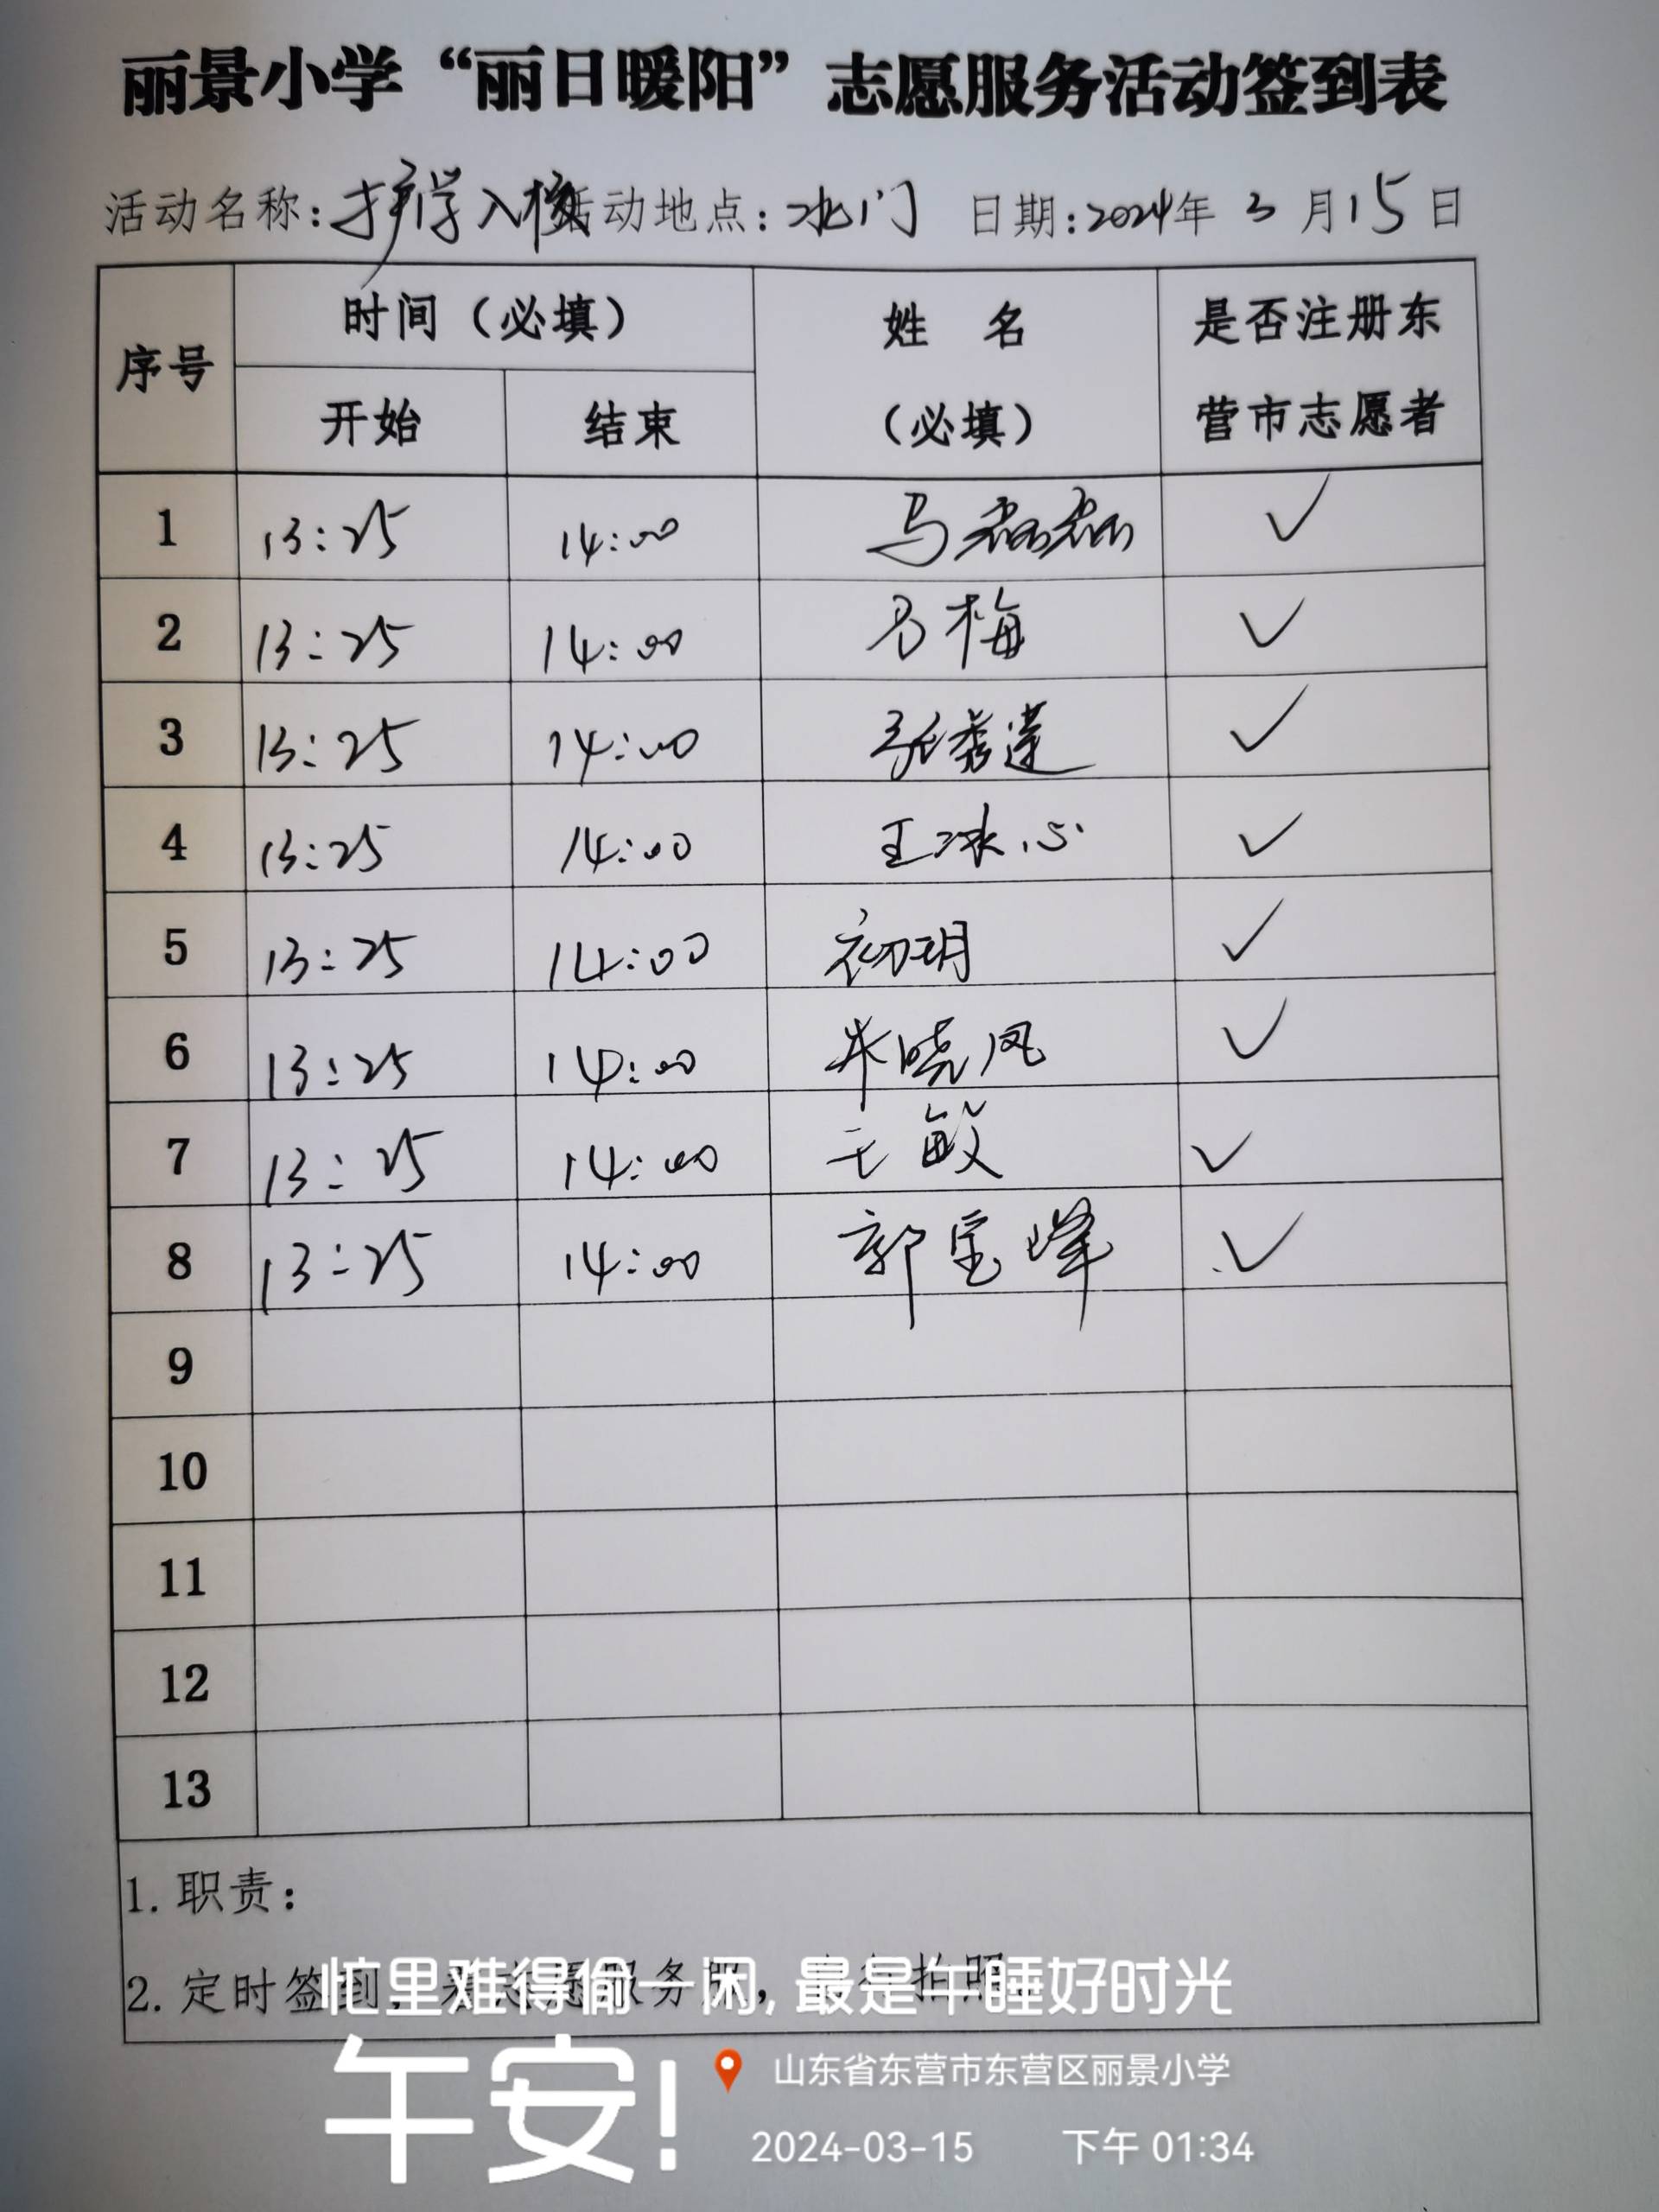 丽景小学“丽日暖阳”志愿服务活动签到表
活动名称:护学入校 活动地点:北门 日期:2024年3月15日
序号 时间（必填） 姓 名 是否注册东
开始 结束 （必填） 营市志愿者
1 13:25 14:00 马磊磊 ✓
2 13:25 14:00 马梅 ✓
3 13:25 14:00 张秀莲 ✓
4 13:25 14:00 王冰心 ✓
5 13:25 14:00 初玥 ✓
6 13:25 14:00 朱晓凤 ✓
7 13:25 14:00 王敏 ✓
8 13:25 14:00 郭宝峰 ✓
9
10
11
12
13
1.职责:
2.定时签到, 志愿服务服, 拍照
忙里难得偷一闲,最是午睡好时光
午安!
山东省东营市东营区丽景小学
2024-03-15 下午 01:34